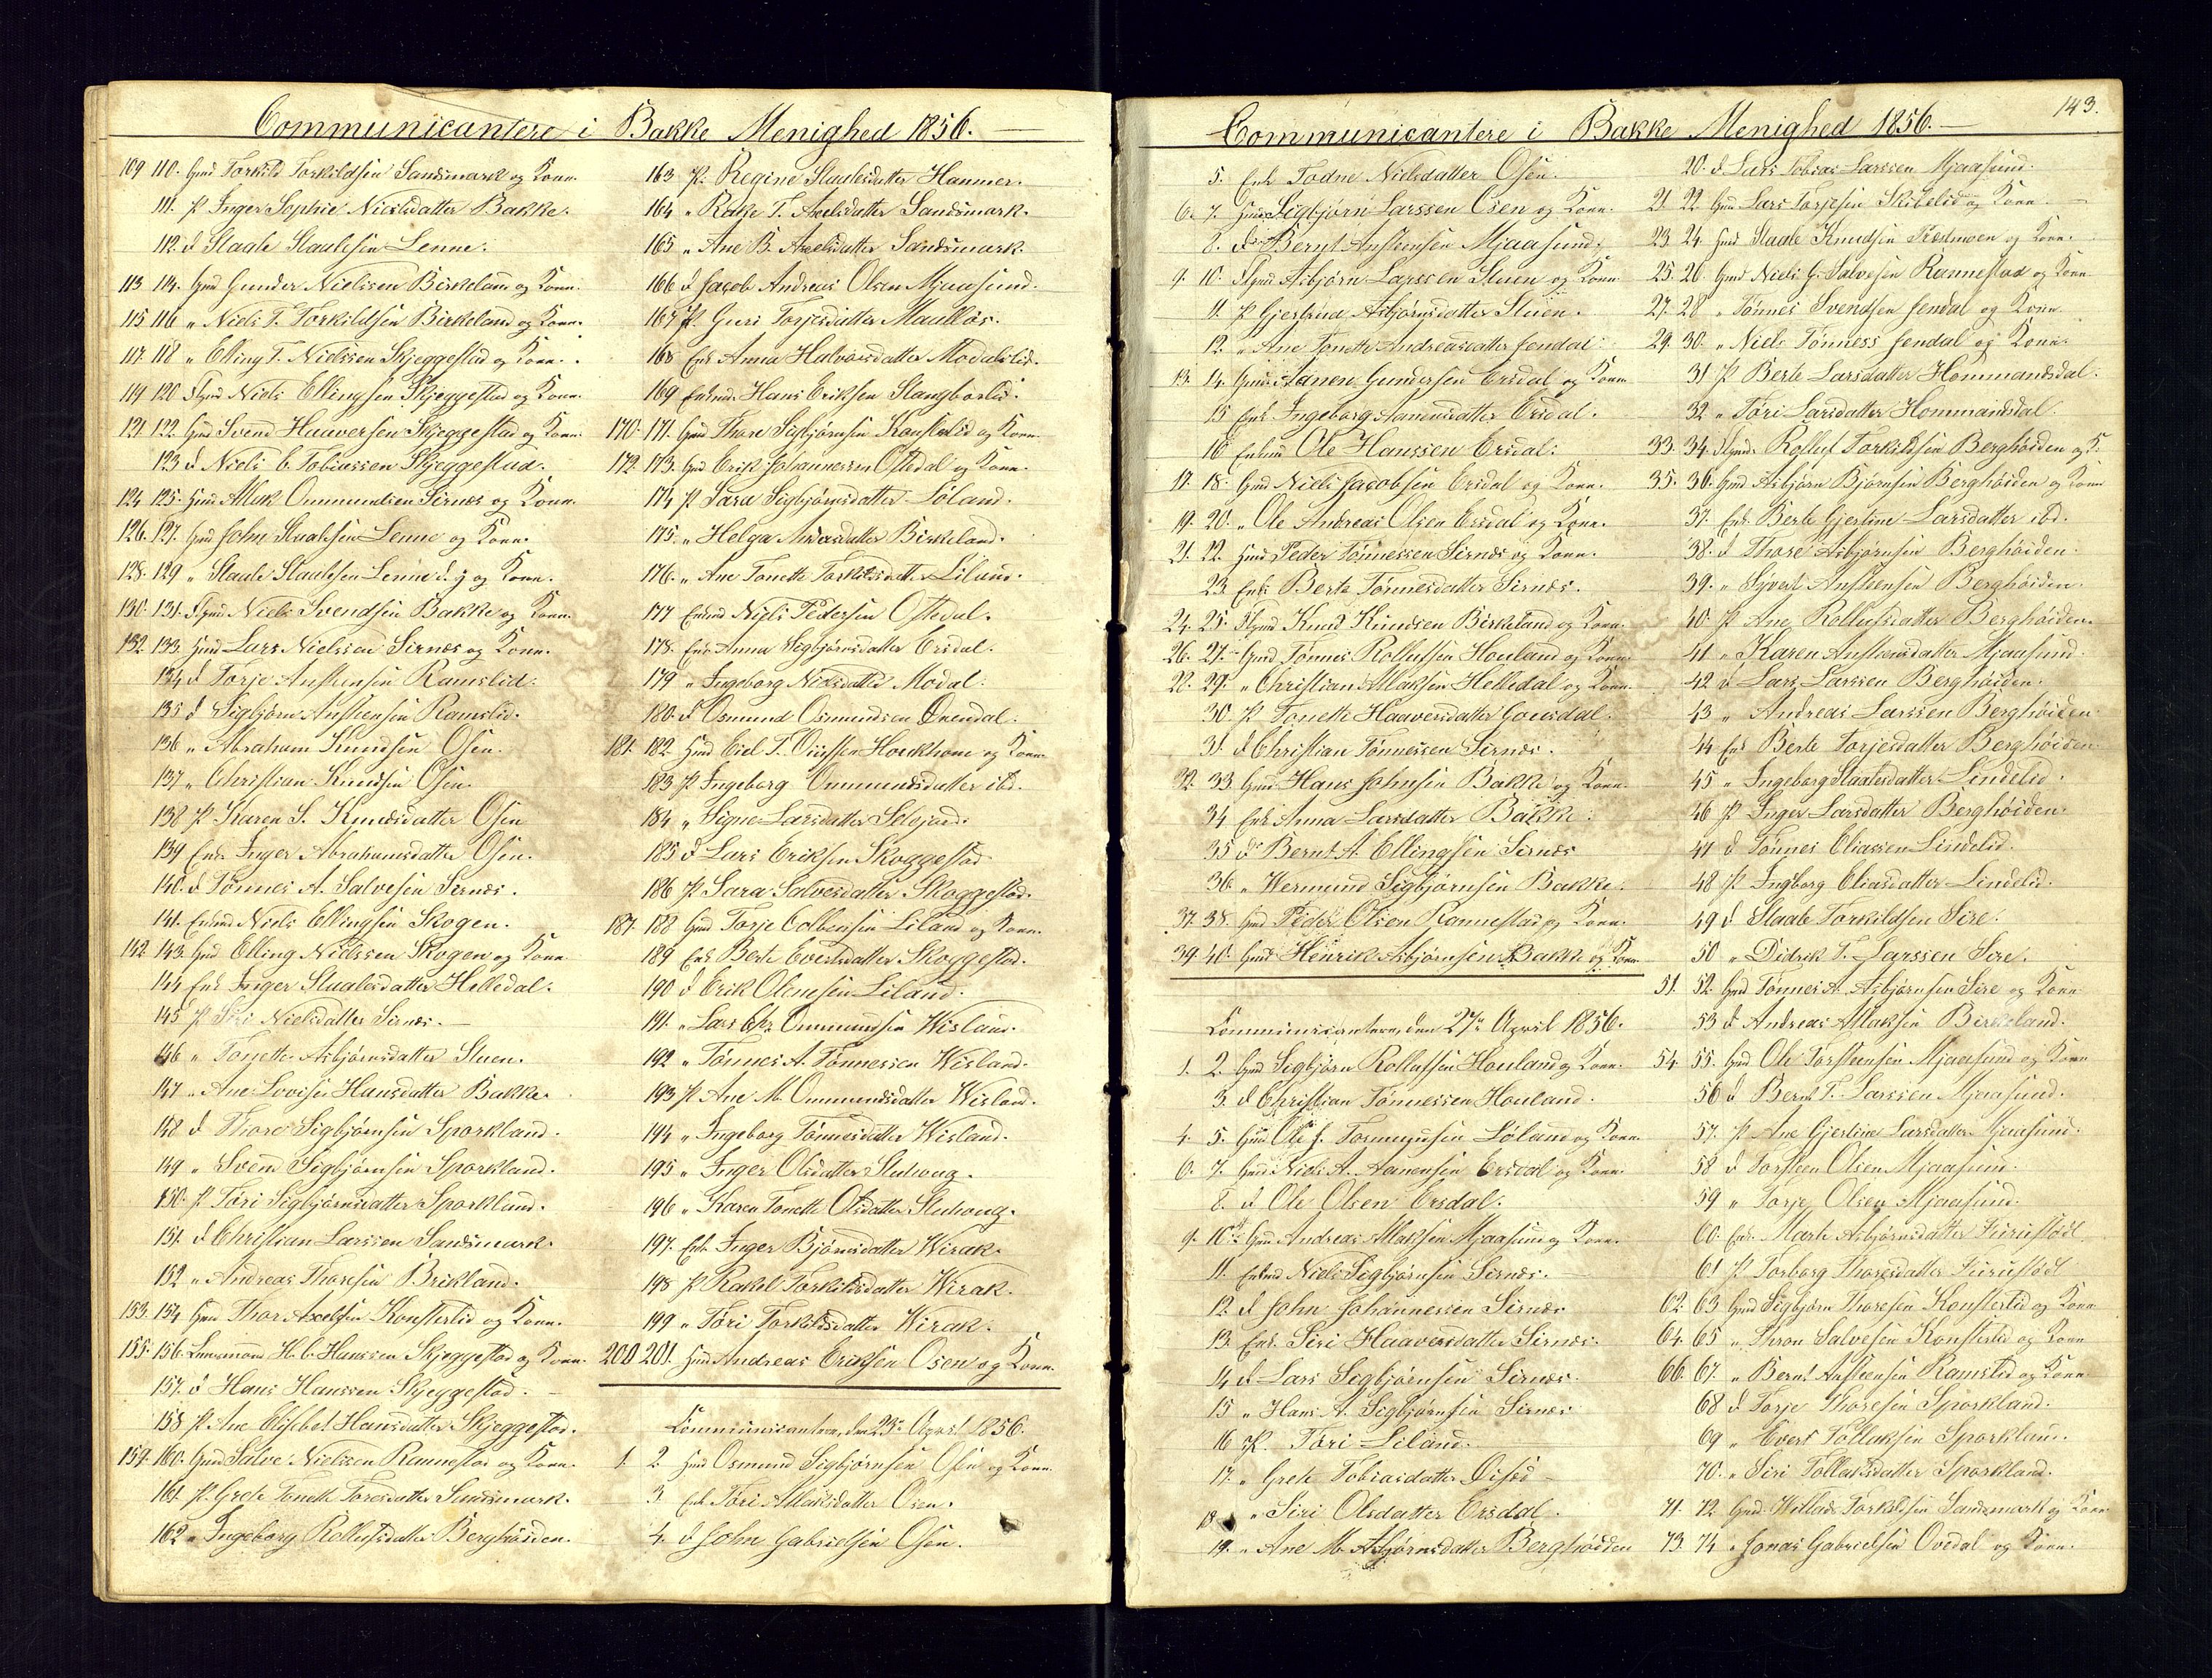 Communicantere i Bakke Menighed 1856.
109 110. Gmd Torkild Torkildsen Sandsmark og Kone.
111. P Inger Sophie Nielsdatter Bakke.
112. d Staale Staalesen Lenne.
113 114. Gmd Gunder Nielssen Birkeland og Kone.
115 116 " Niels T. Torkildsen Birkeland og Kone.
117. 118 " Elling T. Nielssen Skjeggestad og Kone.
119 120 Niels Ellingsen Skjeggestad og Kone.
121 122 Gmd Svend Haaversen Skjeggestad og Kone.
123 d Niels C. Tobiassen Skjeggestad.
124 125. Gmd Atlak Ommundsen Sirnes og Kone.
126. 127. Gmd John Staalesen Lenne og Kone.
128. 129 " Staale Staalesen Lenne d. y og Kone.
130. 131. Niels Svendsen Bakke og Kone.
132. 133. Gmd Lars Nielssen Sirnes og Kone.
134 d Torje Anstensen Ramslid.
135 d Sigbjørn Anstensen Ramslid.
136 " Abraham Knudsen Osen.
137 " Christian Knudsen Osen.
138 P Karen S. Knudsdatter Osen
139 Enk. Inger Abrahamsdatter Osen.
140. d Tønnes A. Salvesen Sirnes.
141. Enkmd Niels Ellingsen Skogen.
142. 143. Gmd Elling Nielssen Skogen og Kone
144 Enk Inger Staalesdatter Helledal.
145 P Siri Nielsdatter Sirnes.
146 " Tonette Asbjørnsdatter Stuen.
147 " Ane Lovise Hansdatter Bakke.
148 d Thore Sigbjørnsen Sporkland.
149 " Svend Sigbjørnsen Sporkland.
150. P Tori Sigbjørnsdatter Sporkland.
151. d Christian Larssen Sandsmark.
152 " Andreas Thoresen Brikland.
153. 154 Gmd Thor Axelsen Konsterlid og Kone.
155. 156. Lensmand H. C. Hanssen Skjeggestad og Kone.
157. d Hans Hanssen Skjeggestad.
158 P. Ane Elisbet Hansdatter Skjeggestad.
159. 160. Gmd Salve Nielssen Rannestad og Kone.
161. P. Grete Tonette Toresdatter Sandsmark.
162 " Ingeborg Rollufsdatter Berghøiden.
163 P. Regine Staalesdatter Hammer.
164 " T. Axelsdatter Sandsmark.
165 " Ane B. Axelsdatter Sandsmark
166 d Jacob Andreas Olsen Mjaasund.
167 P. Guri Torjesdatter
168 Enk Anna Halvorsdatter Modalslid.
169 Enkmd. Hans Eriksen Stangborlid.
170. 171. Gmd Thore Sigbjørnsen Konsterlid og Kone.
172. 173. Gmd Erik Johannessen Oftedal og Kone.
174 P Sara Sigbjørnsdatter Løland.
175. " Helga Birkeland.
176. " Ane Tonette Torkildsdatter Liland.
177 Enkmd Niels Pedersen Oftedal.
178. Enk Anna Sigbjørnsdatter Ersdal.
179 " Ingeborg Nielsdatter Modal.
180. d Osmund Osmundsen Drendal.
181. 182 Gmd Eiel T. og Kone.
183 P Ingeborg Ommundsdatter ibd.
184 " Signe Larsdatter
185 d Lars Eriksen Skoggestad
186 P Sara Salvesdatter Skoggestad.
187. 188 Gmd Torje Liland og Kone.
189 Enk Berte Evertsdatter Skoggestad.
190 d Erik Olenesen Liland.
191. " Lars Chr Ommundsen Wisland.
192 " Tønnes A. Tønnessen Wisland.
193 P Ane M. Ommundsdatter Wisland.
194 " Ingeborg Tønnesdatter Wisland.
195 " Inger Olsdatter Stuhoug.
196 " Karen Tonette Olsdatter Stuhoug.
197. Enk Inger Bjørnsdatter Wirak.
198 P Rakel Torkildsdatter Wirak.
199 " Tøri Torkildsdatter Wirak.
200 201. Gmd Andreas Eriksen Osen og Kone.
Communicantere, den 23de April 1856.
1. 2 Gmd Osmund Sigbjørnsen Osen og Kone.
3 Enk Tøri Atlaksdatter Osen.
4. d John Gabrielsen Osen.
143.
Communicantere i Bakke Menighed 1856.
5. Enk Todne Nielsdatter Osen.
6. 7. Gmd Sigbjørn Larssen Osen og Kone.
8. d Bernt Anstensen Mjaasund.
9. 10. Asbjørn Larssen Stuen og Kone
11. P Gjertrud Asbjørnsdatter Stuen.
12. " Ane Tonette Andreasdatter Jendal
13. 14. Gmd. Aanen Gundersen Ersdal og Kone
15 Enk Ingeborg Aanensdatter Ersdal.
16 Enkmd Ole Hanssen Ersdal.
17. 18. Gmd Niels Jacobsen Ersdal og Kone.
19. 20. " Ole Andreas Olsen Ersdal og Kone.
21. 22. Gmd Peder Tønnessen Sirnes og Kone.
23 Enk Berte Tønnesdatter Sirnes.
24. 25. Knud Knudsen Birkeland og Kone.
26. 27. Gmd Tønnes Rollufsen Houland og Kone
28. 29. " Christian Atlaksen Helledal og Kone.
30. P Tonette Haaversdatter
31. d Christian Tønnessen Sirnes.
32. 33. Gmd Hans Johnsen Bakke og Kone.
34 Enk Anna Larsdatter Bakke.
35 d Bernt A. Ellingsen Sirnes
36 " Wermund Sigbjørnsen Bakke.
37. 38. Gmd Peder Olsen Rannestad og Kone.
39. 40. Gmd Henrik Asbjørnsen Bakke og Kone
Communicantere, den 27de April 1856.
1. 2. Gmd Sigbjørn Rollufsen Houland og Kone.
3. d Christian Tønnessen Houland.
4. 5. Gmd Ole J. Løland og Kone.
6. 7. Gmd Niels A. Aanensen Ersdal og Kone.
8. d Ole Olsen Ersdal.
9. 10. Gmd Andreas Atlaksen Mjaasund og Kone.
11. Enkmd Niels Sigbjørnsen Sirnes.
12. d John Johannessen Sirnes
13. Enk. Siri Haaversdatter Sirnes.
14 d Lars Sigbjørnsen Sirnes.
15 " Hans A. Sigbjørnsen Sirnes
16 P. Tøri Liland.
17. " Grete Tobiasdatter
18 " Siri Olsdatter Ersdal.
19. " Ane M. Asbjørnsdatter Berghøiden
20. d Lars Tobias Larssen Mjaasund.
21 22. Gmd Lars Torjesen Skibelid og Kone.
23 24. Gmd Staale Knudsen og Kone.
25. 26 Gmd Niels J. Salvesen Rannestad og Kone
27. 28 " Tønnes Svendsen Jendal og Kone
29. 30. " Niels Tønness Jendal og Kone
31 P Berte Larsdatter Hommandsdal.
32 " Tøri Larsdatter Hommandsdal.
33. 34. Rolluf Torkildsen Berghøiden og K.
35. 36. Gmd Asbjørn Bjørnsen Berghøiden og Kone
37. Enk. Berte Gjertine Larsdatter ibd.
38. d Thore Asbjørnsen Berghøiden.
39. " Syvert Anstensen Berghøiden.
40. P Ane Rollufsdatter Berghøiden.
41 " Karen Anstensdatter Mjaasund.
42 d Lars Larssen Berghøiden.
43 " Andreas Larssen Berghøiden
44 Enk Berte Torjesdatter Berghøiden
45 " Ingeborg Staalesdatter Lindelid.
46 P Inger Larsdatter Berghøiden.
47 d Tønnes Eliassen Lindelid.
48 P Ingborg Eliasdatter Lindelid.
49 d Staale Torkildsen Sire.
50 " Didrik T. Larssen Sire.
51. 52. Gmd Tønnes A. Asbjørnsen Sire og Kone
53 d Andreas Atlaksen Birkeland.
54 55. Gmd Ole Torstensen Mjaasund og Kone
56 d Bernt T. Larssen Mjaasund.
57. P Ane Gjertine Larsdatter Mjaasund.
58 d Torsten Olsen Mjaasund.
59 " Torje Olsen Mjaasund.
60. Enk. Marte Asbjørnsdatter Furustøl
61 P Torborg Thoresdatter Furustøl
62. 63 Gmd Sigbjørn Thoresen Konsterlid og Kone
64. 65 " Thron Salvesen Konsterlid og Kone
66. 67. " Bernt Anstensen Ramslid og Kone
68 d Torje Thoresen Sporkland.
69 " Evert Tollaksen Sporkland.
70. " Siri Tollaksdatter Sporkland.
71. 72 Gmd. Willads Torkildsen Sandsmark og Kone
73. 74 " Jonas Gabrielsen Ovedal og Kone.